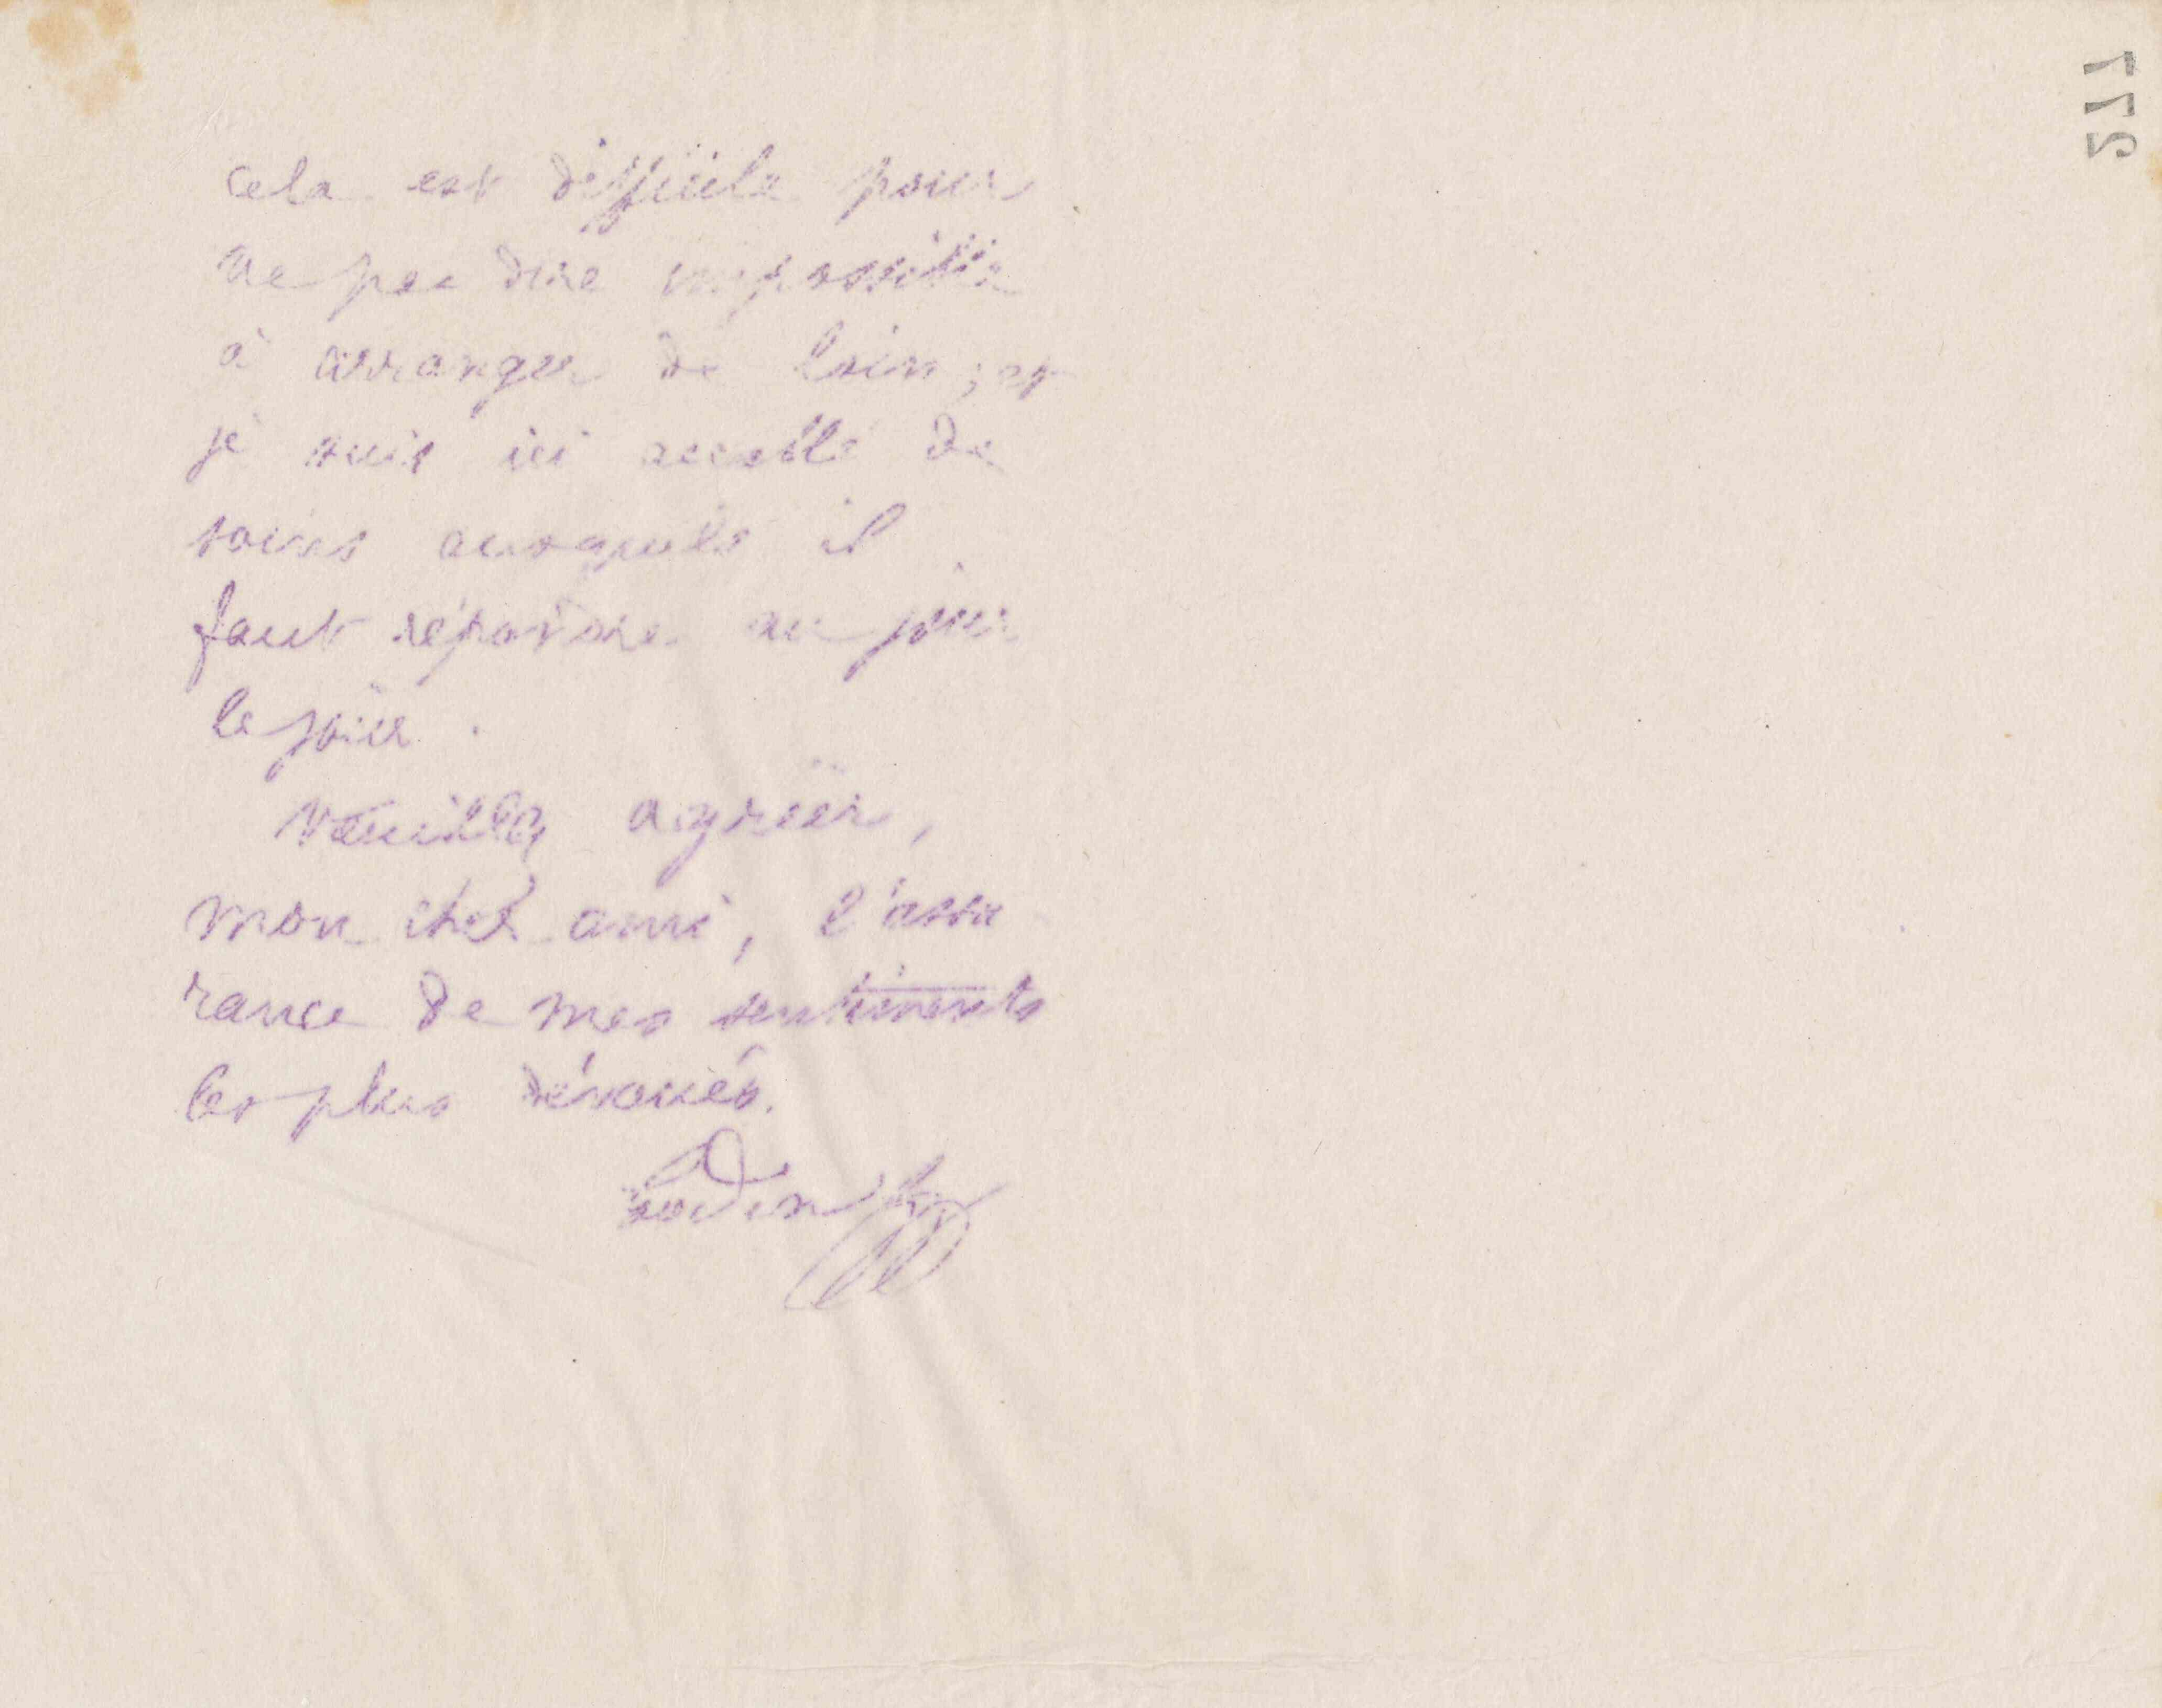 cela est difficile pour
ne pas dire impossible
à arranger de loin ; et
je suis ici accablé de
soins auxquels il
faut répondre au jour
le jour.
Veuillez agréer,
mon cher ami, l'assu
rance de mes sentiments
les plus dévoués.
Godin
277